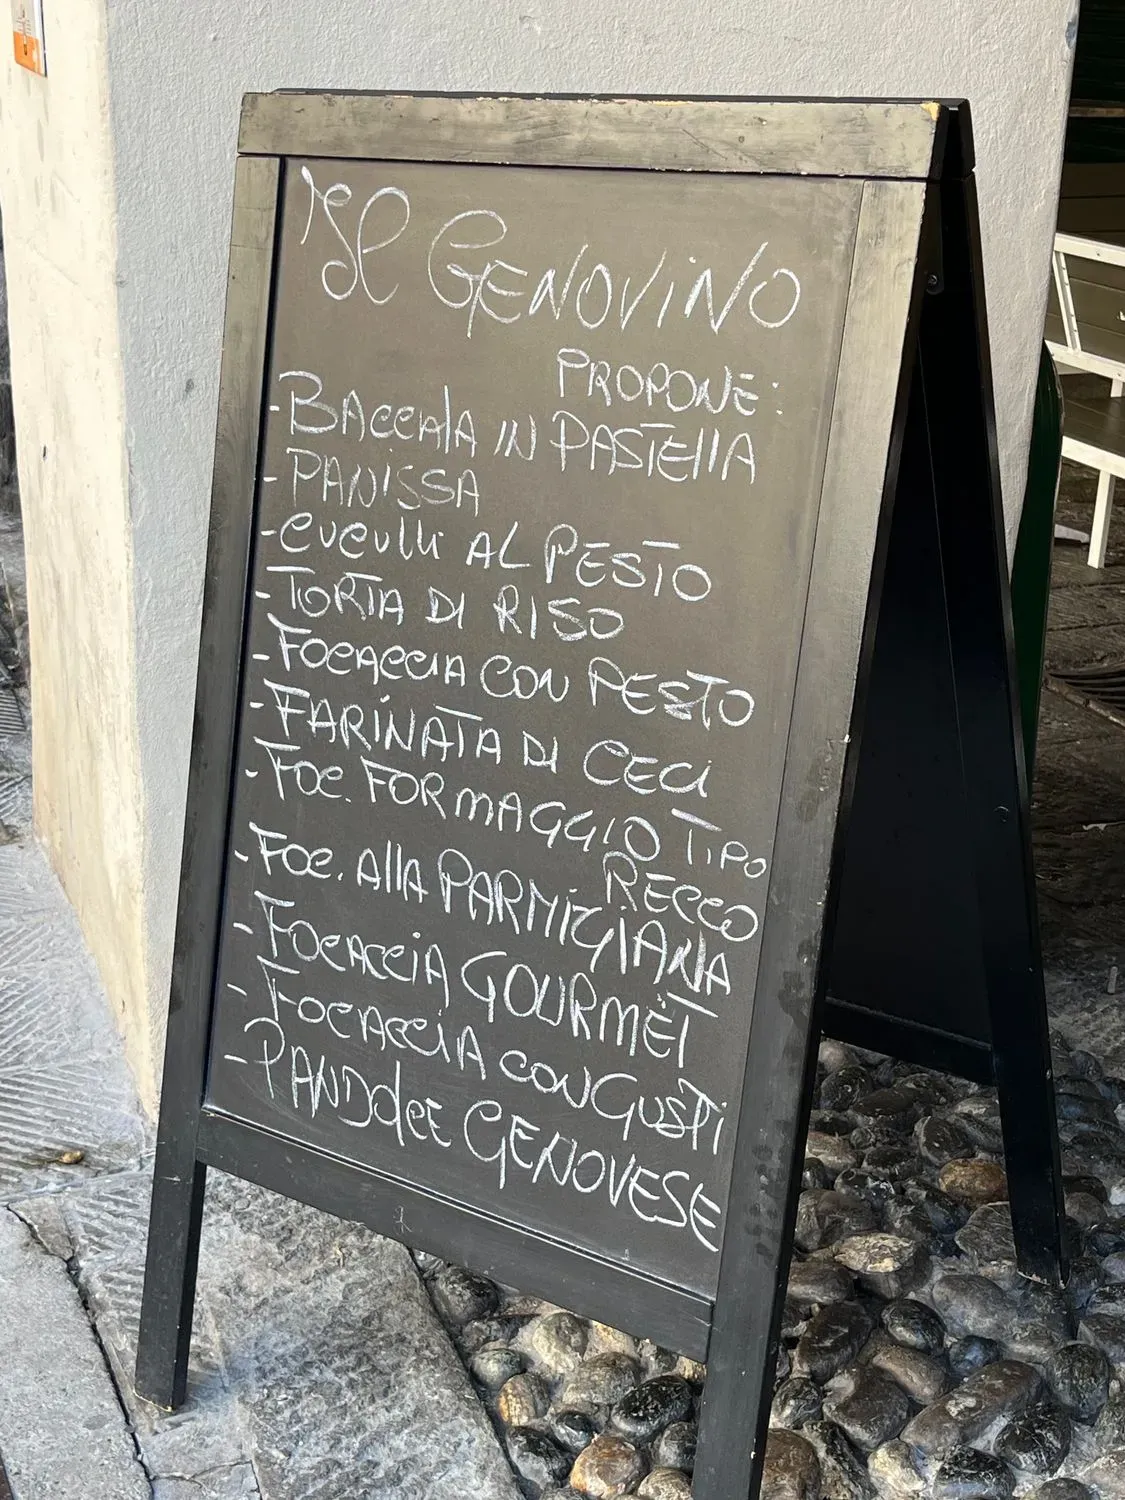 Il GENOViNO
PROPONE:
- BACCAlA IN PASTEllA
- PANiSSA
- CUCUlli AL PESTO
- TORTA DI RISO
- FOCACCIA CON PESTO
- FARiNATA DI CECi
- FOC. FORMAGGIO TiPO
RECCO
- FOC. Alla PARMIGIANA
- FOCACCiA GOURMET
- FOCACCiA CON GUSTi
- PANDOlCE GENOVESE